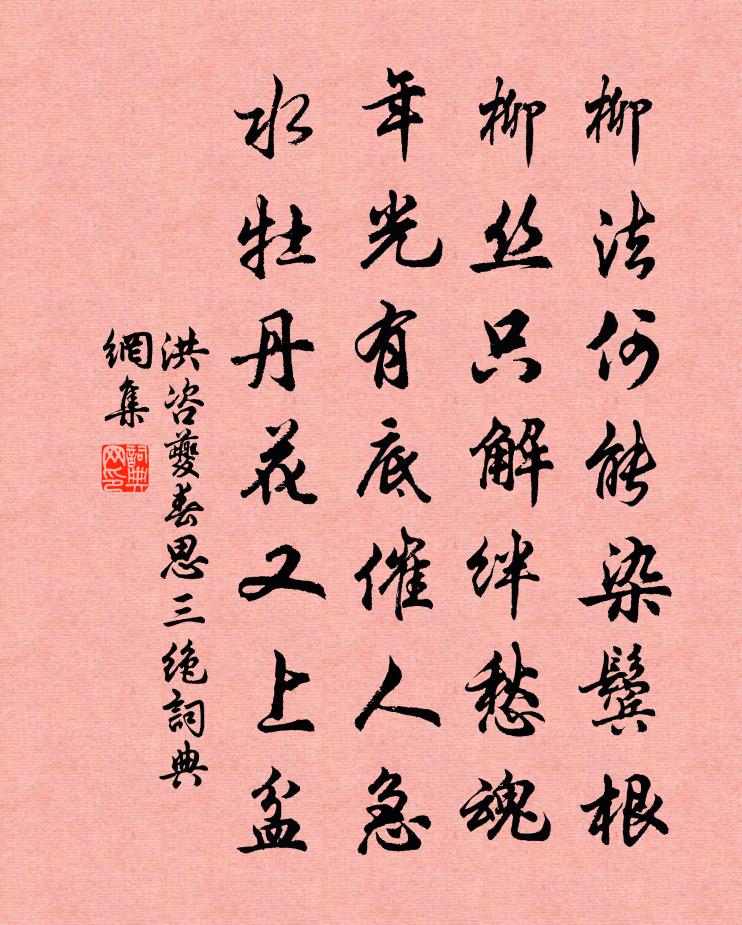 柳法何能染鬓根
柳丝只解絆愁魂
年光有底催人急
水牡丹花又上盆
洪咨夔春思三绝詞典
網集
詞典
网印